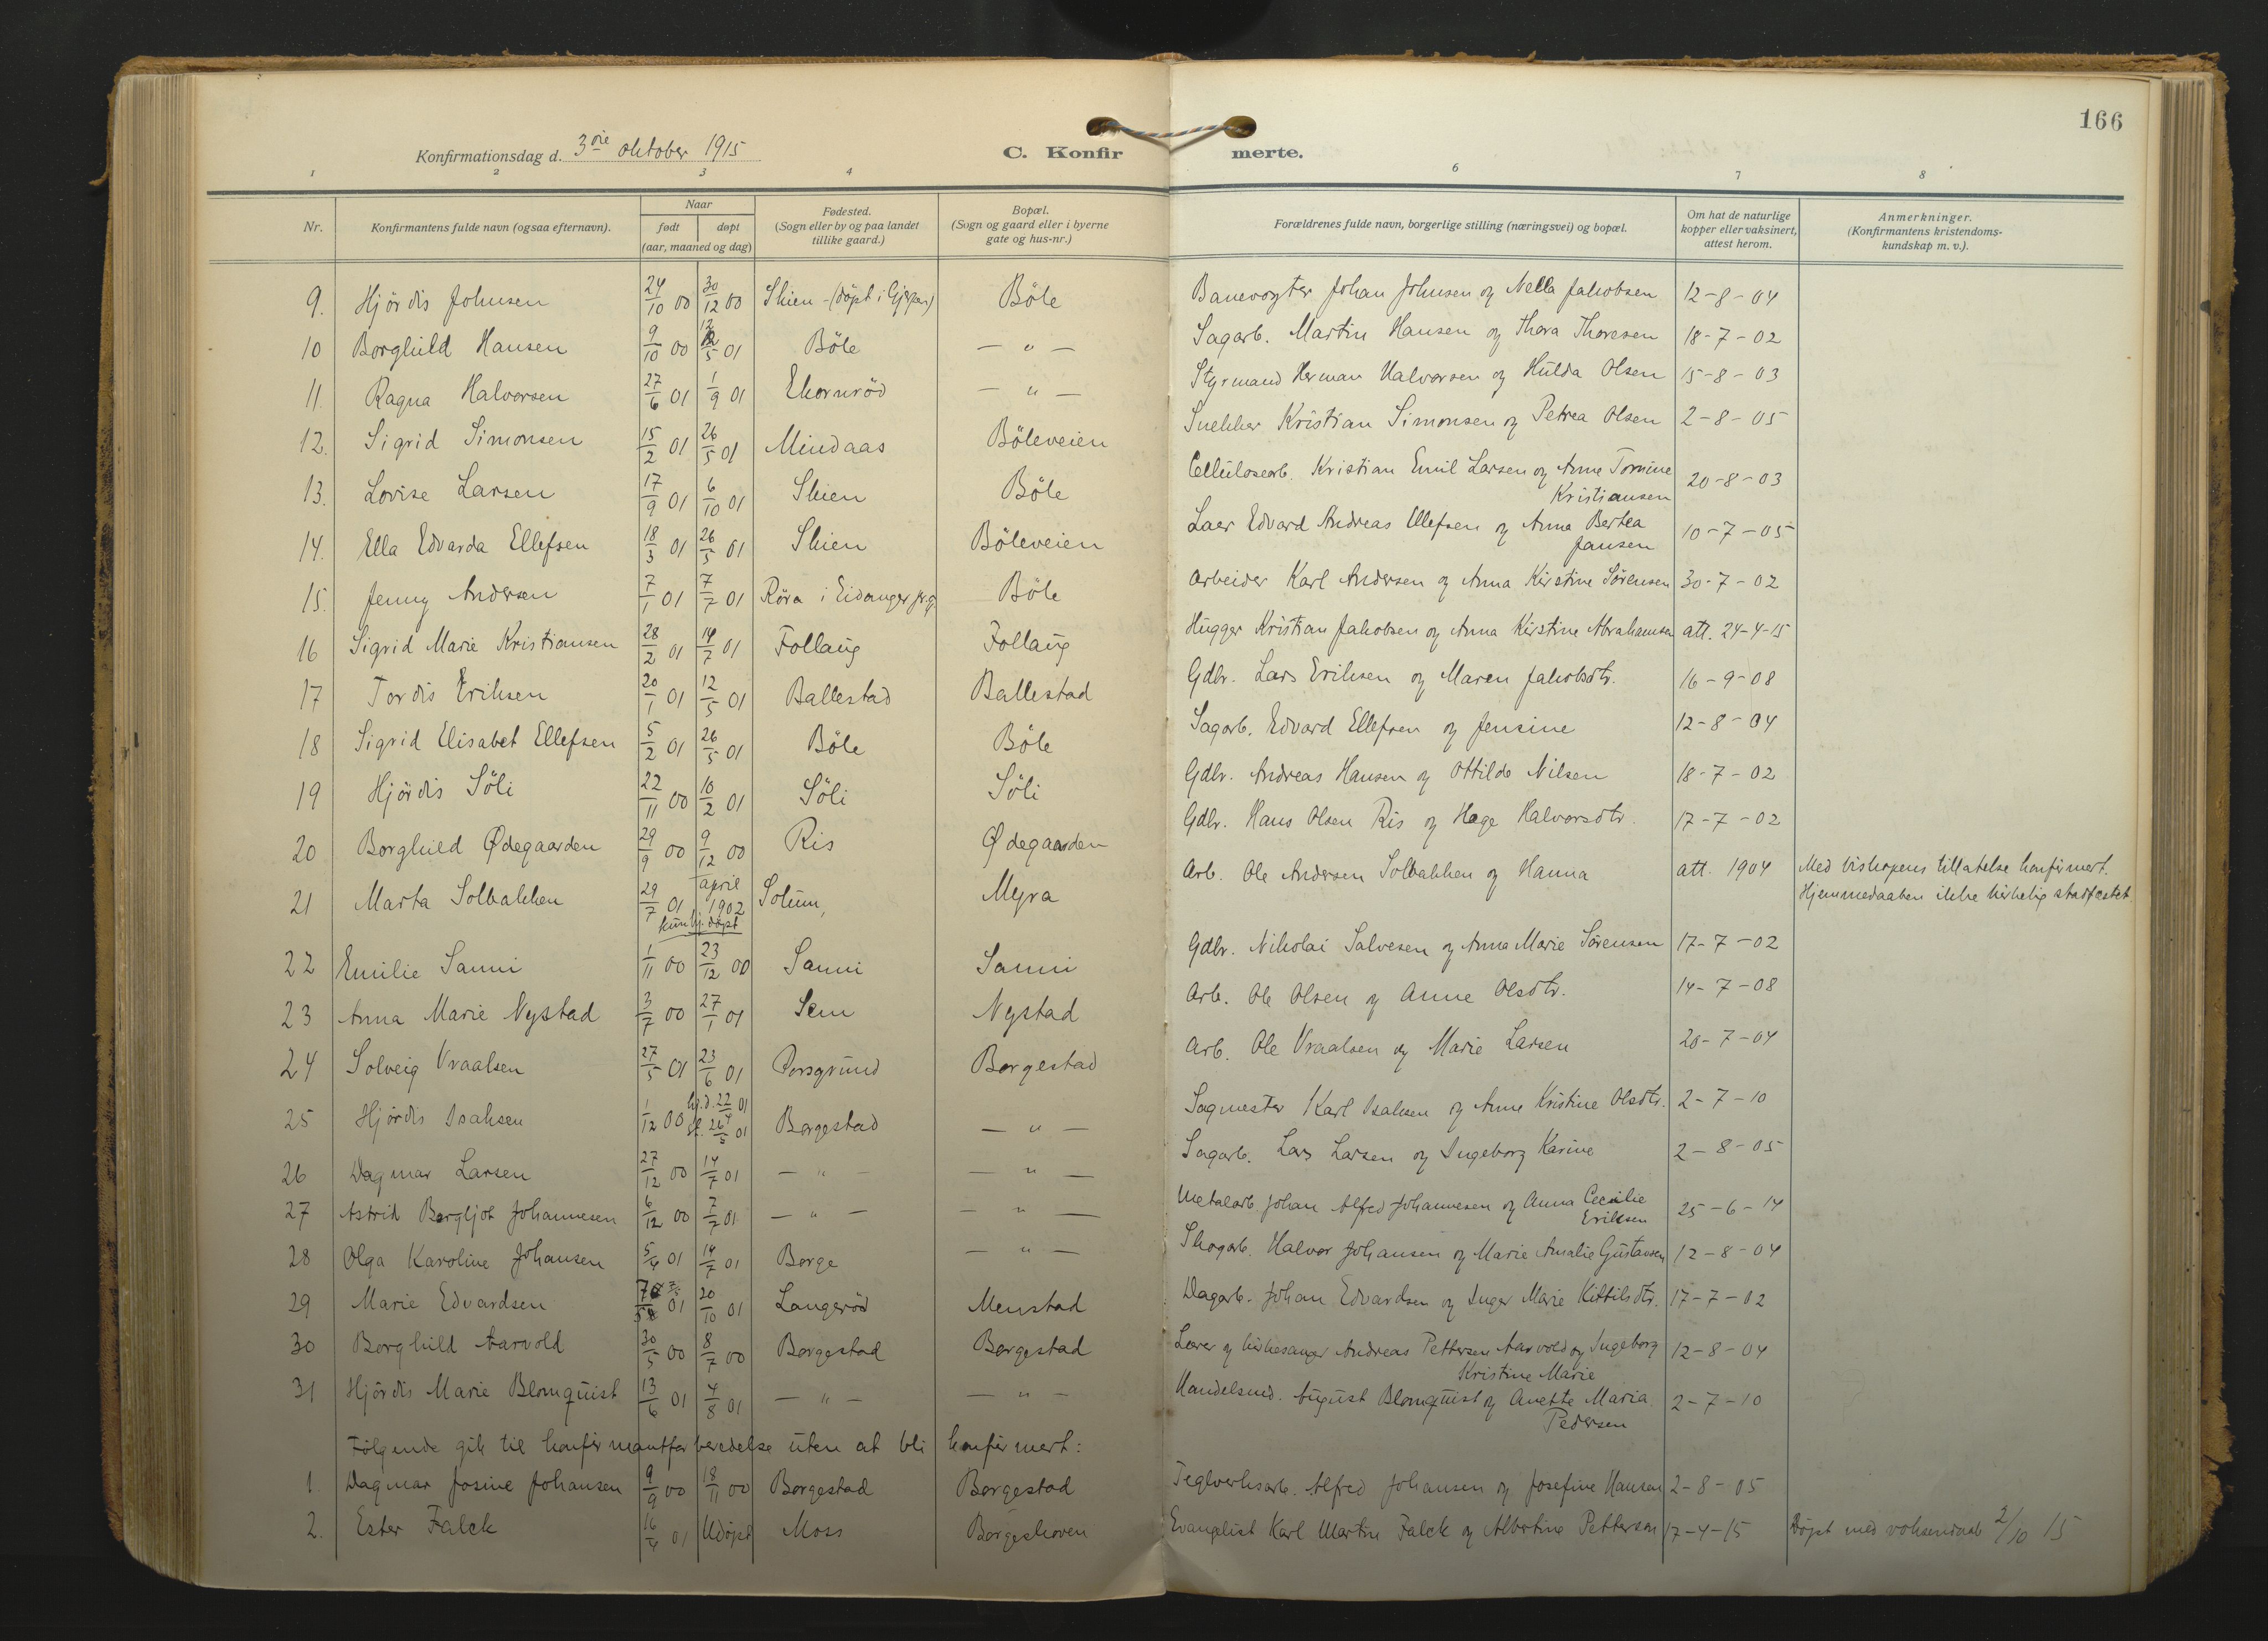 166
Konfirmationsdag d. 3die oktober 1915 C. Konfirmerte.
1 2 3 4 6 7 8
Nr. Konfirmantens fulde navn (ogsaa efternavn). Naar født døpt (aar, maaned og dag) Fødested. (Sogn eller by og paa landet tillike gaard.) Bopæl. (Sogn og gaard eller i byerne gate og hus-nr.) Forældrenes fulde navn, borgerlige stilling (næringsvei) og bopæl. Om hat de naturlige kopper eller vaksinert, attest herom. Anmerkninger. (Konfirmantens kristendomskundskap m. v.).
9. Hjördis Johnsen 24/10 00 30/12 00 Skien - (döpt i Gjerpen) Böle Banevogter Johan Johnsen og Nella Jakobsen 12-8-04
10 Borghild Hansen 9/10 00 12/5 01 Böle — " — Sagarb. Martin Hansen og Thora Thoresen 18-7-02
11. Ragna Halvorsen 27/6 01 1/9 01 Ekornröd — " — Styrmand Herman Halvorsen og Hulda Olsen 15-8-03
12. Sigrid Simonsen 15/2 01 26/5 01 Mindaas Böleveien Snekker Kristian Simonsen og Petrea Olsen 2-8-05
13. Lovise Larsen 17/9 01 6/10 01 Skien Böle Cellulosearb. Kristian Emil Larsen og Anne Tomine Kristiansen 20-8-03
14. Ella Edvarda Ellefsen 18/3 01 26/5 01 Skien Böleveien Laer Edvard Andreas Ellefsen og Anna Bertea Jansen 10-7-05
15. Jenny Andersen 7/1 01 7/7 01 Röra i Eidanger pr.g. Böle Arbeider Karl Andersen og Anna Kirstine Sörensen 30-7-02
16 Sigrid Marie Kristiansen 28/2 01 14/7 01 Follaug Follaug Hugger Kristian Jakobsen og Anna Kirstine Abrahamsen att. 24-4-15
17 Tordis Eriksen 20/1 01 12/5 01 Ballestad Ballestad Gdbr. Lars Eriksen og Maren Jakobsdtr. 16-9-08
18 Sigrid Elisabet Ellefsen 5/2 01 26/5 01 Böle Böle Sagarb. Edvard Ellefsen og Jensine 12-8-04
19 Hjördis Söli 22/11 00 10/2 01 Söli Söli Gdbr. Andreas Hansen og Ottilde Nilsen 18-7-02
20 Borghild Ødegaarden 29/9 00 9/12 00 Ris Ødegaarden Gdbr. Hans Olsen Ris og Hage Halvorsdtr. 17-7-02
21 Marta Solbakken 29/7 01 april 1902 kun hj. döpt Solum, Myra Arb. Ole Andersen Solbakken og Hanna att. 1904 Med biskopens tillatelse konfirmert. Hjemmedaaben ikke kirkelig stadfæstet
22 Emilie Sanni 1/11 00 23/12 00 Sanni Sanni Gdbr. Nikolai Salvesen og Anna Marie Sörensen 17-7-02
23 Anna Marie Nystad 3/7 00 27/1 01 Sem Nystad Arb. Ole Olsen og Anne Olsdtr. 14-7-08
24 Solveig Vraalsen 27/5 01 23/6 01 Porsgrund Borgestad Arb. Ole Vraalsen og Marie Larsen 20-7-04
25 Hjördis Isaksen 1/12 00 hj.d. 22/4 01 st. 26/5 01 Borgestad — " — Sagmester Karl Isaksen og Anne Kristine Olsdtr. 2-7-10
26 Dagmar Larsen 27/12 00 14/7 01 — " — — " — Sagarb. Lars Larsen og Ingeborg Karine 2-8-05
27 Astrid Bergljot Johannesen 6/12 00 7/7 01 — " — — " — Metalarb. Johan Alfred Johannesen og Anna Cecilie Eriksen 25-6-14
28 Olga Karoline Johansen 5/4 01 14/7 01 Borge — " — Skogarb. Halvor Johansen og Marie Amalie Gustavsen 12-8-04
29 Marie Edvardsen 01 20/10 01 Langeröd Menstad Dagarb. Johan Edvardsen og Inger Marie Kittilsdtr. 17-7-02
30 Borghild Aarvold 30/5 00 8/7 00 Borgestad Borgestad Lærer og kirkesanger Andreas Pettersen Aarvold og Ingeborg Kristine Marie 12-8-04
31 Hjördis Marie Blomquist 13/6 01 4/8 01 — " — — " — Handelsmd. August Blomquist og Anette Maria Pedersen 2-7-10
Fölgende gik til konfirmantforberedelse uten at bli konfirmert:
1. Dagmar Josine Johansen 9/9 00 18/11 00 Borgestad Borgestad Teglverksarb. Alfred Johansen og Josefine Hansen 2-8-05
2. Ester Falck 16/4 01 Udöpt Moss Borgeskoven Evangelist Karl Martin Falck og Albertine Pettersen 17-4-15 Döpt med voksendaab 2/10 15